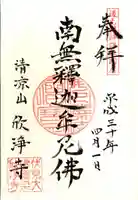 奉拜
平成三十年
四月一日
南無釋迦牟尼佛
清凉山 欣浄寺